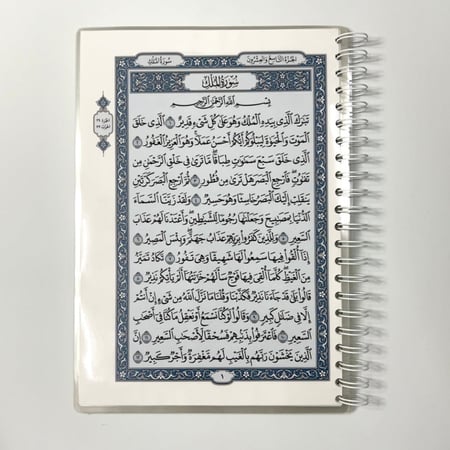 الجزء التاسع والعشرين
سورة الملك
سُورَةُ المُلْكِ
بِسْمِ اللَّهِ الرَّحْمَٰنِ الرَّحِيمِ
تَبَٰرَكَ الَّذِي بِيَدِهِ الْمُلْكُ وَهُوَ عَلَىٰ كُلِّ شَيْءٍ قَدِيرٌ ١ الَّذِي خَلَقَ
الْمَوْتَ وَالْحَيَوٰةَ لِيَبْلُوَكُمْ أَيُّكُمْ أَحْسَنُ عَمَلًا وَهُوَ الْعَزِيزُ الْغَفُورُ ٢
الَّذِي خَلَقَ سَبْعَ سَمَٰوَٰتٍ طِبَاقًا مَّا تَرَىٰ فِي خَلْقِ الرَّحْمَٰنِ مِن
تَفَٰوُتٍ فَارْجِعِ الْبَصَرَ هَلْ تَرَىٰ مِن فُطُورٍ ٣ ثُمَّ ارْجِعِ الْبَصَرَ كَرَّتَيْنِ
يَنقَلِبْ إِلَيْكَ الْبَصَرُ خَاسِئًا وَهُوَ حَسِيرٌ ٤ وَلَقَدْ زَيَّنَّا السَّمَاءَ
الدُّنْيَا بِمَصَٰبِيحَ وَجَعَلْنَٰهَا رُجُومًا لِّلشَّيَٰطِينِ وَأَعْتَدْنَا لَهُمْ عَذَابَ
السَّعِيرِ ٥ وَلِلَّذِينَ كَفَرُوا بِرَبِّهِمْ عَذَابُ جَهَنَّمَ وَبِئْسَ الْمَصِيرُ ٦
إِذَا أُلْقُوا فِيهَا سَمِعُوا لَهَا شَهِيقًا وَهِيَ تَفُورُ ٧ تَكَادُ تَمَيَّزُ
مِنَ الْغَيْظِ كُلَّمَا أُلْقِيَ فِيهَا فَوْجٌ سَأَلَهُمْ خَزَنَتُهَا أَلَمْ يَأْتِكُمْ نَذِيرٌ ٨
قَالُوا بَلَىٰ قَدْ جَاءَنَا نَذِيرٌ فَكَذَّبْنَا وَقُلْنَا مَا نَزَّلَ اللَّهُ مِن شَيْءٍ إِنْ أَنتُمْ
إِلَّا فِي ضَلَٰلٍ كَبِيرٍ ٩ وَقَالُوا لَوْ كُنَّا نَسْمَعُ أَوْ نَعْقِلُ مَا كُنَّا فِي أَصْحَٰبِ
السَّعِيرِ ١٠ فَاعْتَرَفُوا بِذَنبِهِمْ فَسُحْقًا لِّأَصْحَٰبِ السَّعِيرِ ١١ إِنَّ
الَّذِينَ يَخْشَوْنَ رَبَّهُم بِالْغَيْبِ لَهُم مَّغْفِرَةٌ وَأَجْرٌ كَبِيرٌ ١٢
١